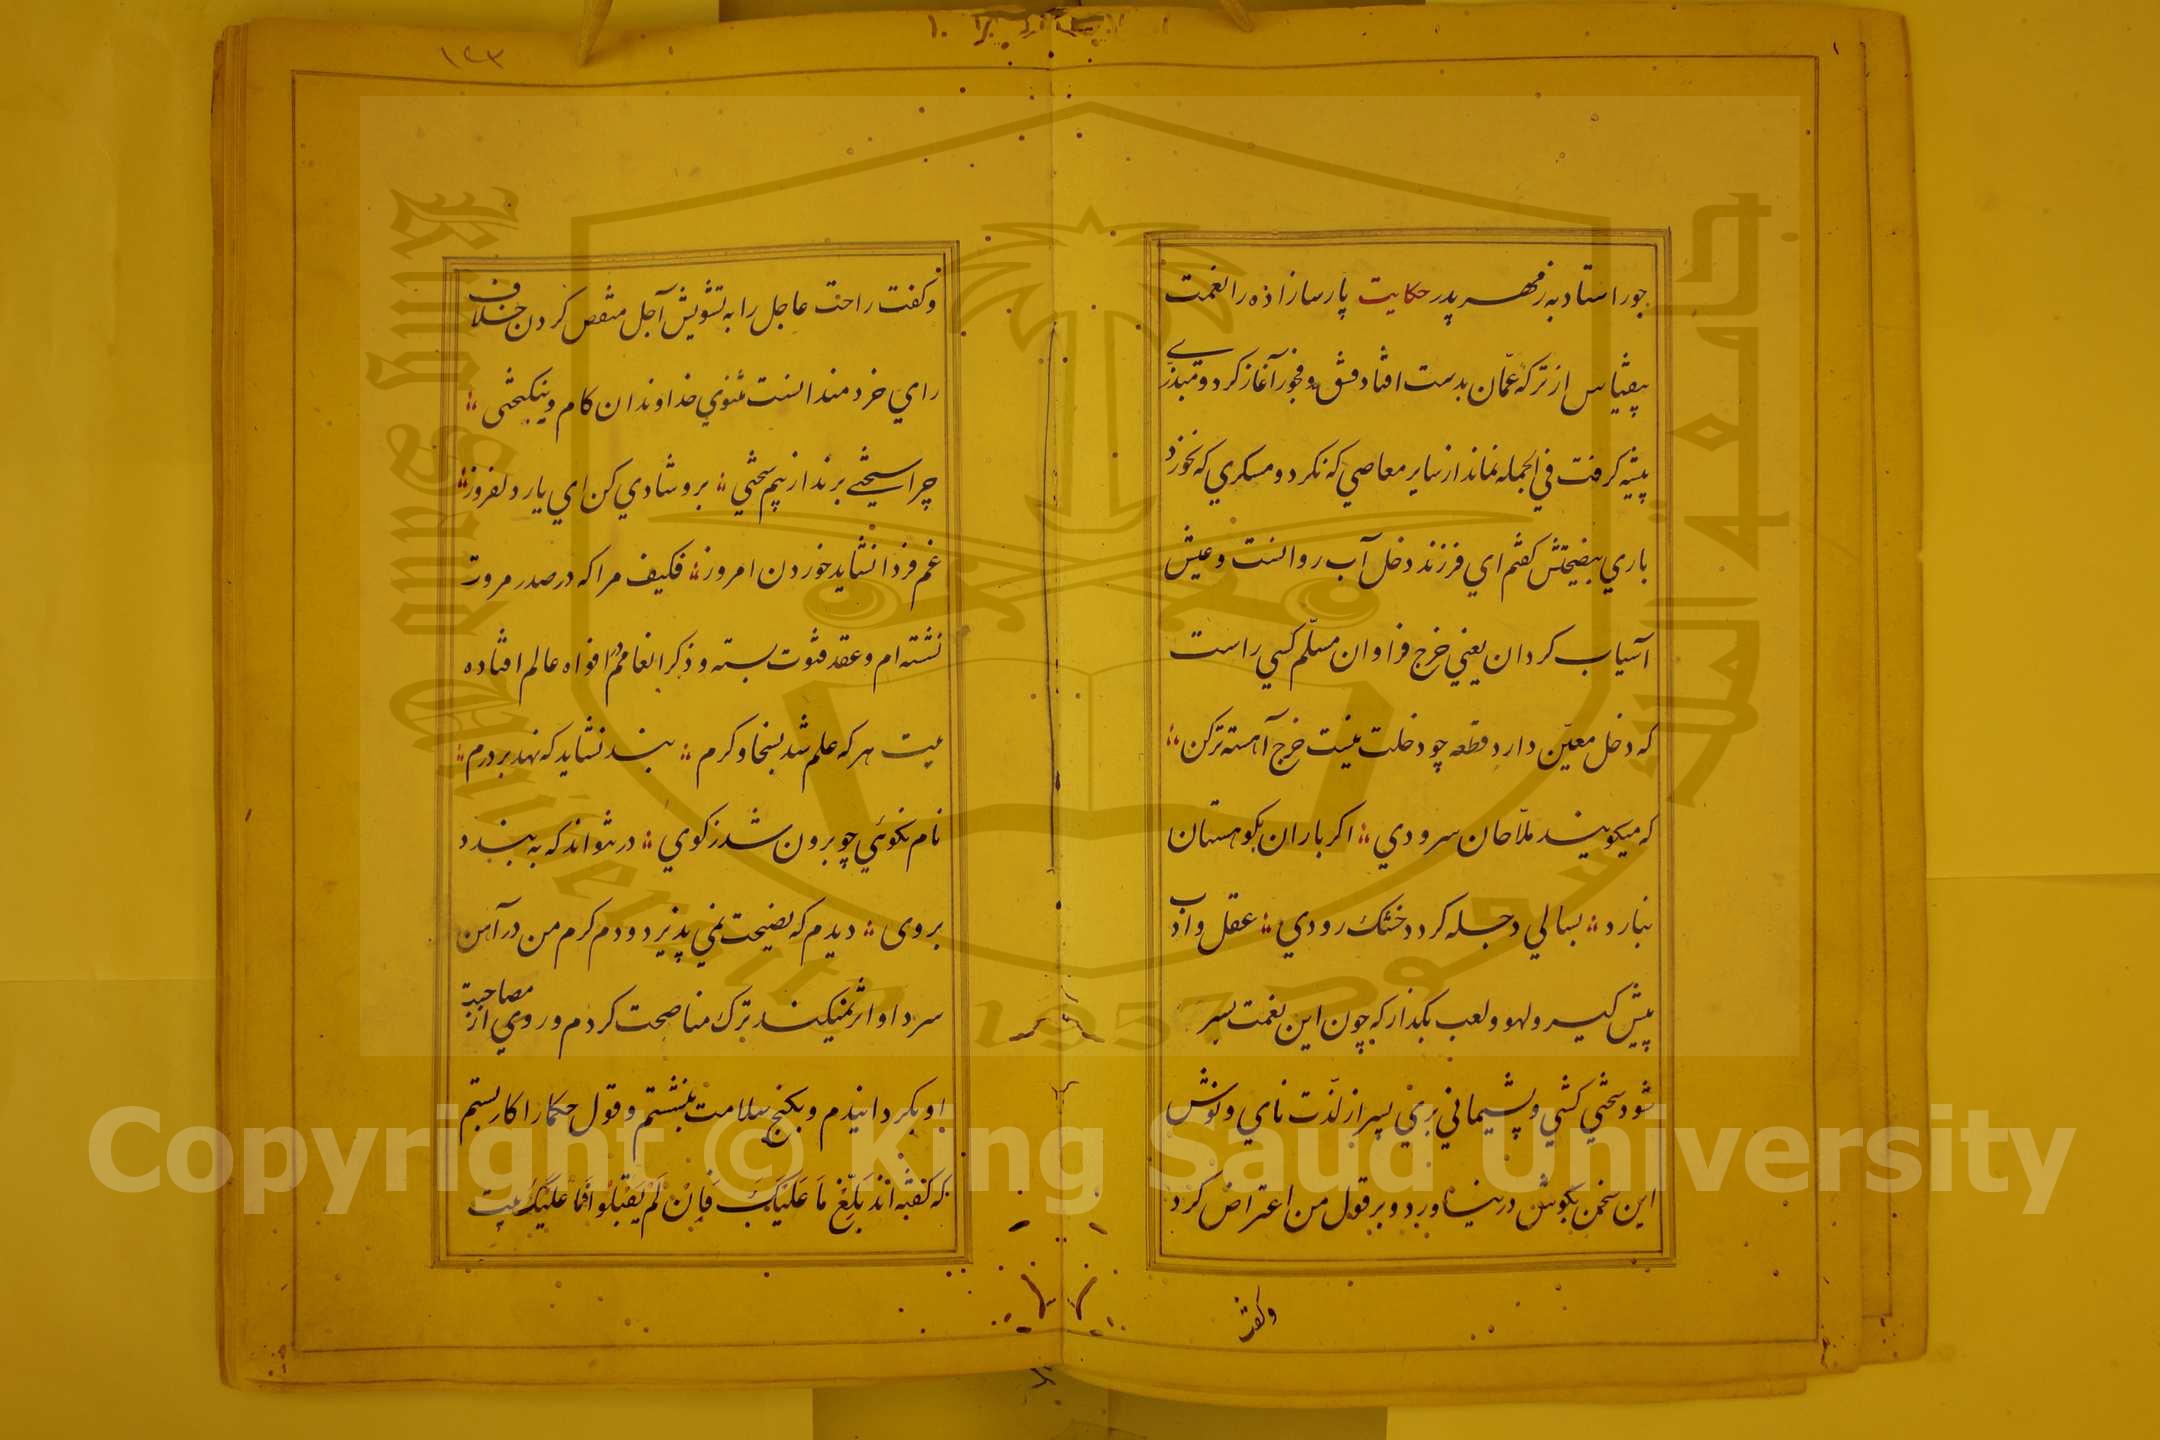 جور استاد به ز مهر پدر حکایت پارسا زاده را نعمت
بیقیاس از ترکه عمّان بدست افتاد فسق و فجور آغاز کرد و مبذری
پیشه کرفت في الجمله نماند از سایر معاصي که نکرد و مسکري که نخورد
باري بنصیحتش کفتم اي فرزند دخل آب روانست و عیش
آسیاب کردان یعني خرج فراوان مسلّم کسي راست
که دخل معیّن دارد قطعه چو دخلت نیست خرج آهسته ترکن
که میکویند ملّاحان سرودي اکر باران بکوهستان
نبارد بسالي دجله کردد خشک رودي عقل و ادب
پیش کیر و لهو و لعب بکذار که چون این نعمت سپر
شود سختي کشي و پشیماني بري پسر از لذّت ناي و نوش
این سخن بکوش در نیاورد و بر قول من اعتراض کرد
وکفت
١٤٣
وکفت راحت عاجل را به تشویش آجل منقص کردن خلاف
راي خردمندانست مثنوي خداوندان کام و نیکبختی
چرا سختی برند از بیم سختي برو شادي کن اي یار دلفروز
غم فردا نشاید خوردن امروز فکیف مرا که در صدر مروت
نشسته ام و عقد فتوت بسته و ذکر انعامم در افواه عالم افتاده
بیت هرکه علم شد بسخا و کرم بند نشاید که نهد بر درم
نام نکوئي چو برون شد ز کوي در نتواند که به بندد
بروی دیدم که نصیحت نمي پذیرد و دم کرم من در آهن
سرد او اثر نمیکند ترک مناصحت کردم و روي از مصاحبت
او بکردانیدم و بکنج سلامت بنشستم و قول حکما را کار بستم
که کفته اند بَلِّغْ مَا عَلَيْكَ فَإِنْ لَمْ يَقْبَلُوا فَمَا عَلَيْكَ بیت
King Saud University
جامعة الملك سعود
1957
Copyright © King Saud University